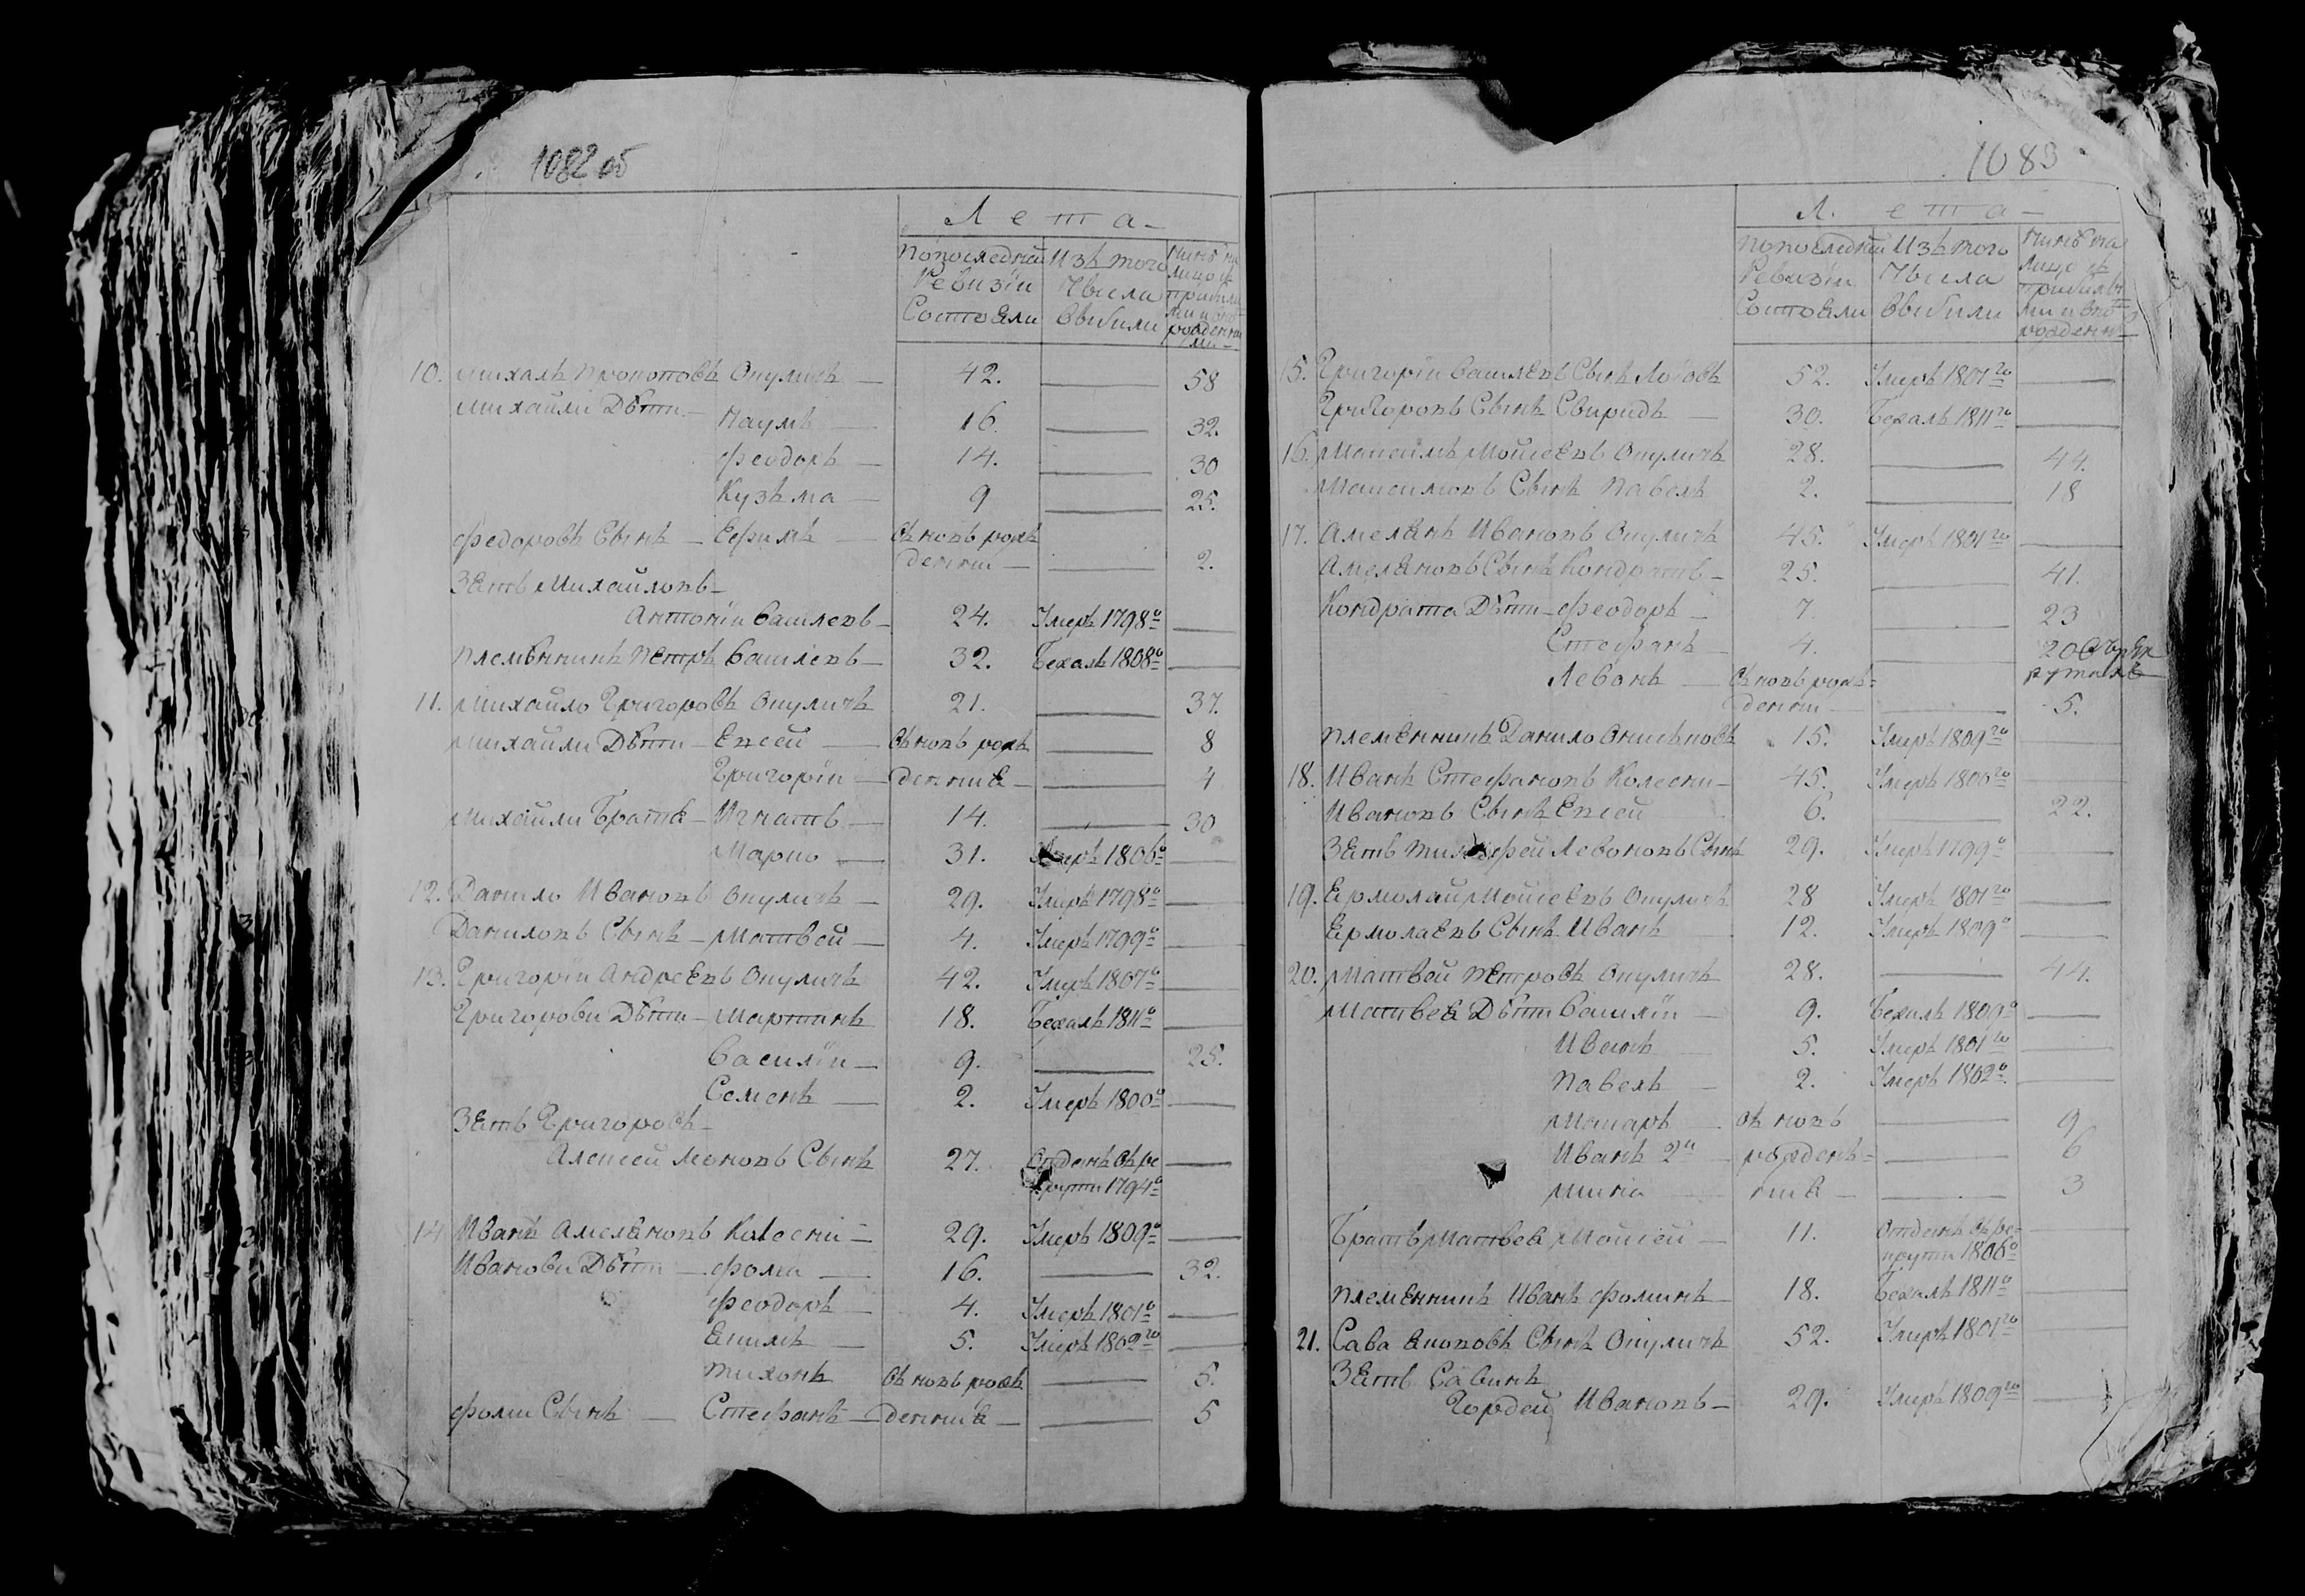 1082 об
Лета
Попоследней Изъ того Нинѣ на
Ревизіи Числа лицо съ
Состояли Выбыли прибили
ми и вно
рожденни
ми
10. Михалъ Прокоповъ Опуличъ — 42. — 58
Михайли Дѣти — Наумъ — 16. — 32.
Феодоръ — 14. — 30
Кузьма — 9 — 25.
Федоровъ Сынъ — Ефимъ — Вновь рож
денни — — 2.
Зять Михайловъ —
Антоній Василевъ — 24. Умеръ 1798го —
Племѣнникъ Петръ Василевъ — 32. Бежалъ 1808го —
11. Михайло Григоровъ Опуличъ 21. — 37.
Михайли Дѣти — Евсей — Вновь рож — 8
Григорій — денния — — 4
Михайли Братя — Игнатъ — 14. — 30
Марко — 31. Умеръ 1806го —
12. Данило Ивановъ Опуличъ — 29. Умеръ 1798го —
Даниловъ Сынъ — Матвей — 4. Умеръ 1799го —
13. Григорій Андреевъ Опуличъ 42. Умеръ 1807го —
Григорови Дѣти — Мартинъ 18. Бежалъ 1811го —
Василій — 9. — 25.
Семенъ — 2. Умеръ 1800го —
Зять Григоровъ —
Алексей Леоновъ Сынъ 27. Отданъ въ ре —
крути 1794го
14 Иванъ Амеляновъ Колесни — 29. Умеръ 1809го —
Иванови Дѣти — Фома — 16. — 32.
Феодоръ — 4. Умеръ 1801го —
Екимъ — 5. Умеръ 1802го —
Тихонъ Вновь рож — 5.
Фоми Сынъ — Стефанъ — денния — — 5
1083
Лета —
Попоследней Изъ того Нинѣ на
Ревизіи Числа лицо съ
Состояли Выбили прибилы
ми и вно
рожденни
15. Григорій Василевъ Сынъ 52. Умеръ 1801го —
Григоровъ Сынъ Свиридъ — 30. Бежалъ 1811го —
16. Максимъ Мойсеевъ Опуличъ 28. — 44.
Максимовъ Сынъ Павелъ 2. — 18
17. Амелянъ Ивановъ Опуличъ 45. Умеръ 1801го —
Амеляновъ Сынъ Кондратъ — 25. — 41.
Кондрата Дѣти — Феодоръ — 7. — 23
Стефанъ — 4. — 20
Левонъ — Вновь рож-
денни — — 5.
Племянникъ Данило 15. Умеръ 1809го —
18. Иванъ Стефановъ Колесни — 45. Умеръ 1800го —
Ивановъ Сынъ Евсей 6. — 22.
Зять Тимофей Левоновъ Сынъ 29. Умеръ 1799го —
19. Ермолай Мойсеевъ Опуличъ 28 Умеръ 1801го —
Ермолаевъ Сынъ Иванъ 12. Умеръ 1809го —
20. Матвей Петровъ Опуличъ 28. — 44.
Матвея Дѣти Василій — 9. Бежалъ 1809го —
Иванъ — 5. Умеръ 1801го —
Павелъ — 2. Умеръ 1802го —
Макаръ — Вновь — 9
Иванъ 2й — рожден- — 6
Мина — ния — — 3
Братъ Матвея Мойсей — 11. Отданъ въ ре- —
крути 1806го
Племянникъ Иванъ Фоминъ — 18. Бежалъ 1811го —
21. Сава Сынъ Опуличъ 52. Умеръ 1801го —
Зять Савинъ
Гордей Ивановъ — 29. Умеръ 1809го —